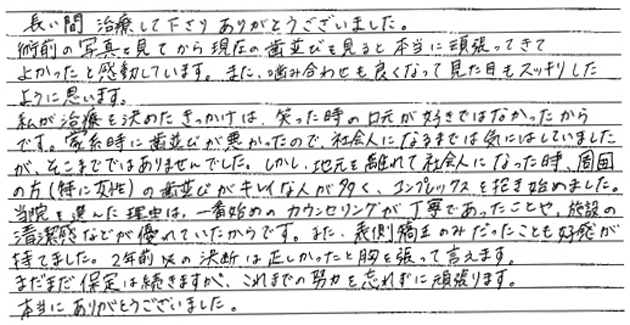 長い間 治療して下さり ありがとうございました。
術前の写真を見てから現在の歯並びを見ると本当に頑張ってきて
よかったと感動しています。また、噛み合わせも良くなって見た目もスッキリした
ように思います。
私が治療を決めたきっかけは、笑った時の口元が好きではなかったから
です。家系時に歯並びが悪かったので、社会人になるまでは気にはしていました
が、そこまでではありませんでした。しかし、地元を離れて社会人になった時、周囲
の方(特に女性)の歯並びがキレイな人が多く、コンプレックスを抱き始めました。
当院を選んだ理由は、一番始めのカウンセリングが丁寧であったことや、施設の
清潔感などが優れていたからです。また、表側矯正のみだったことも好感が
持てました。2年前の決断は正しかったと胸を張って言えます。
まだまだ保定は続きますが、これまでの努力を忘れずに頑張ります。
本当にありがとうございました。